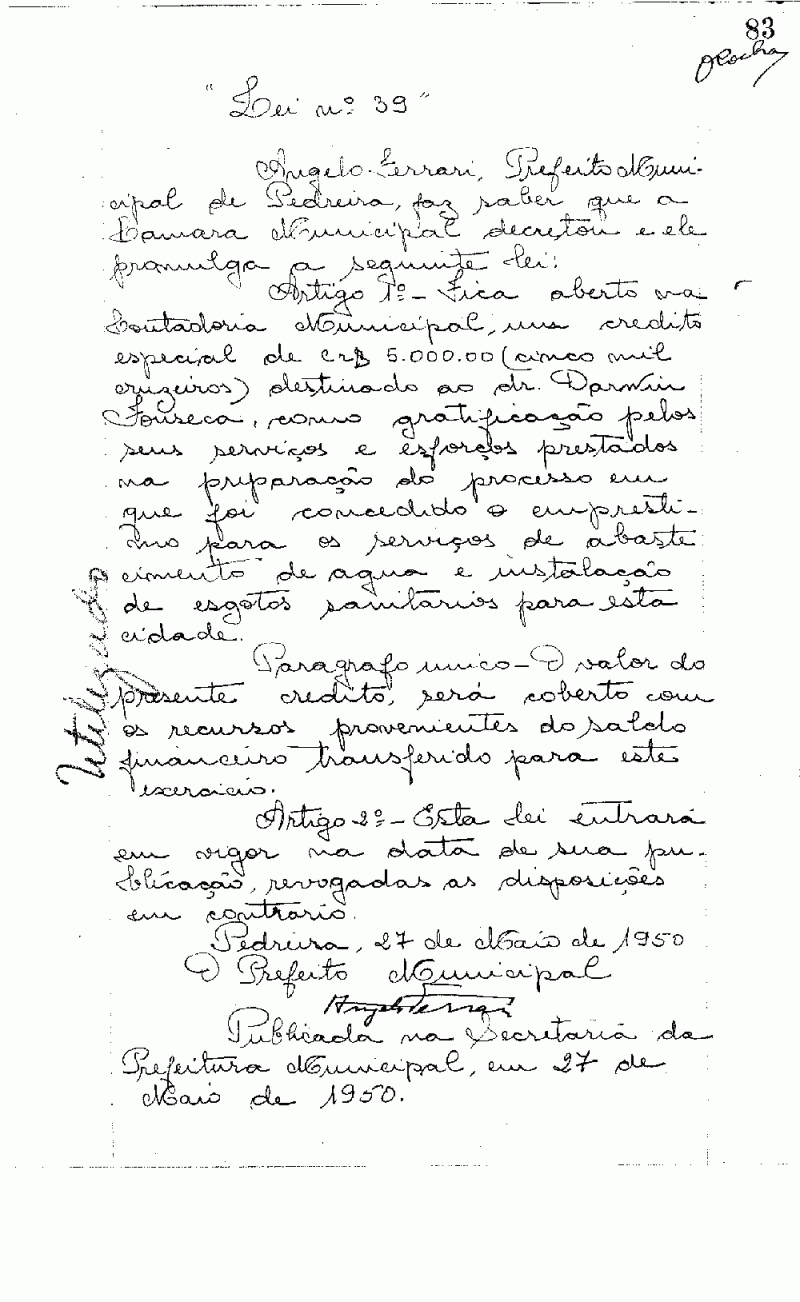 83
"Lei nº 39"
Angelo Ferrari, Prefeito Muni-
cipal de Pedreira, faz saber que a
Camara Municipal decretou e ele
promulga a seguinte lei:
Artigo 1º - Fica aberto na
Contadoria Municipal, um credito
especial de Cr$ 5.000.00 (cinco mil
cruzeiros) destinado ao dr. Darwin
Fonseca, como gratificação pelos
seus serviços e esforços prestados
na preparação do processo em
que foi concedido o empresti-
mo para os serviços de abaste
cimento de agua e instalação
de esgotos sanitários para esta
cidade.
Paragrafo unico - O valor do
presente credito, será coberto com
os recursos provenientes do saldo
financeiro transferido para este
exercicio.
Artigo 2º - Esta lei entrará
em vigor na data de sua pu-
blicação, revogadas as disposições
em contrario.
Pedreira, 27 de Maio de 1950
O Prefeito Municipal
Angelo Ferrari
Publicada na Secretaria da
Prefeitura Municipal, em 27 de
Maio de 1950.
Utilizado